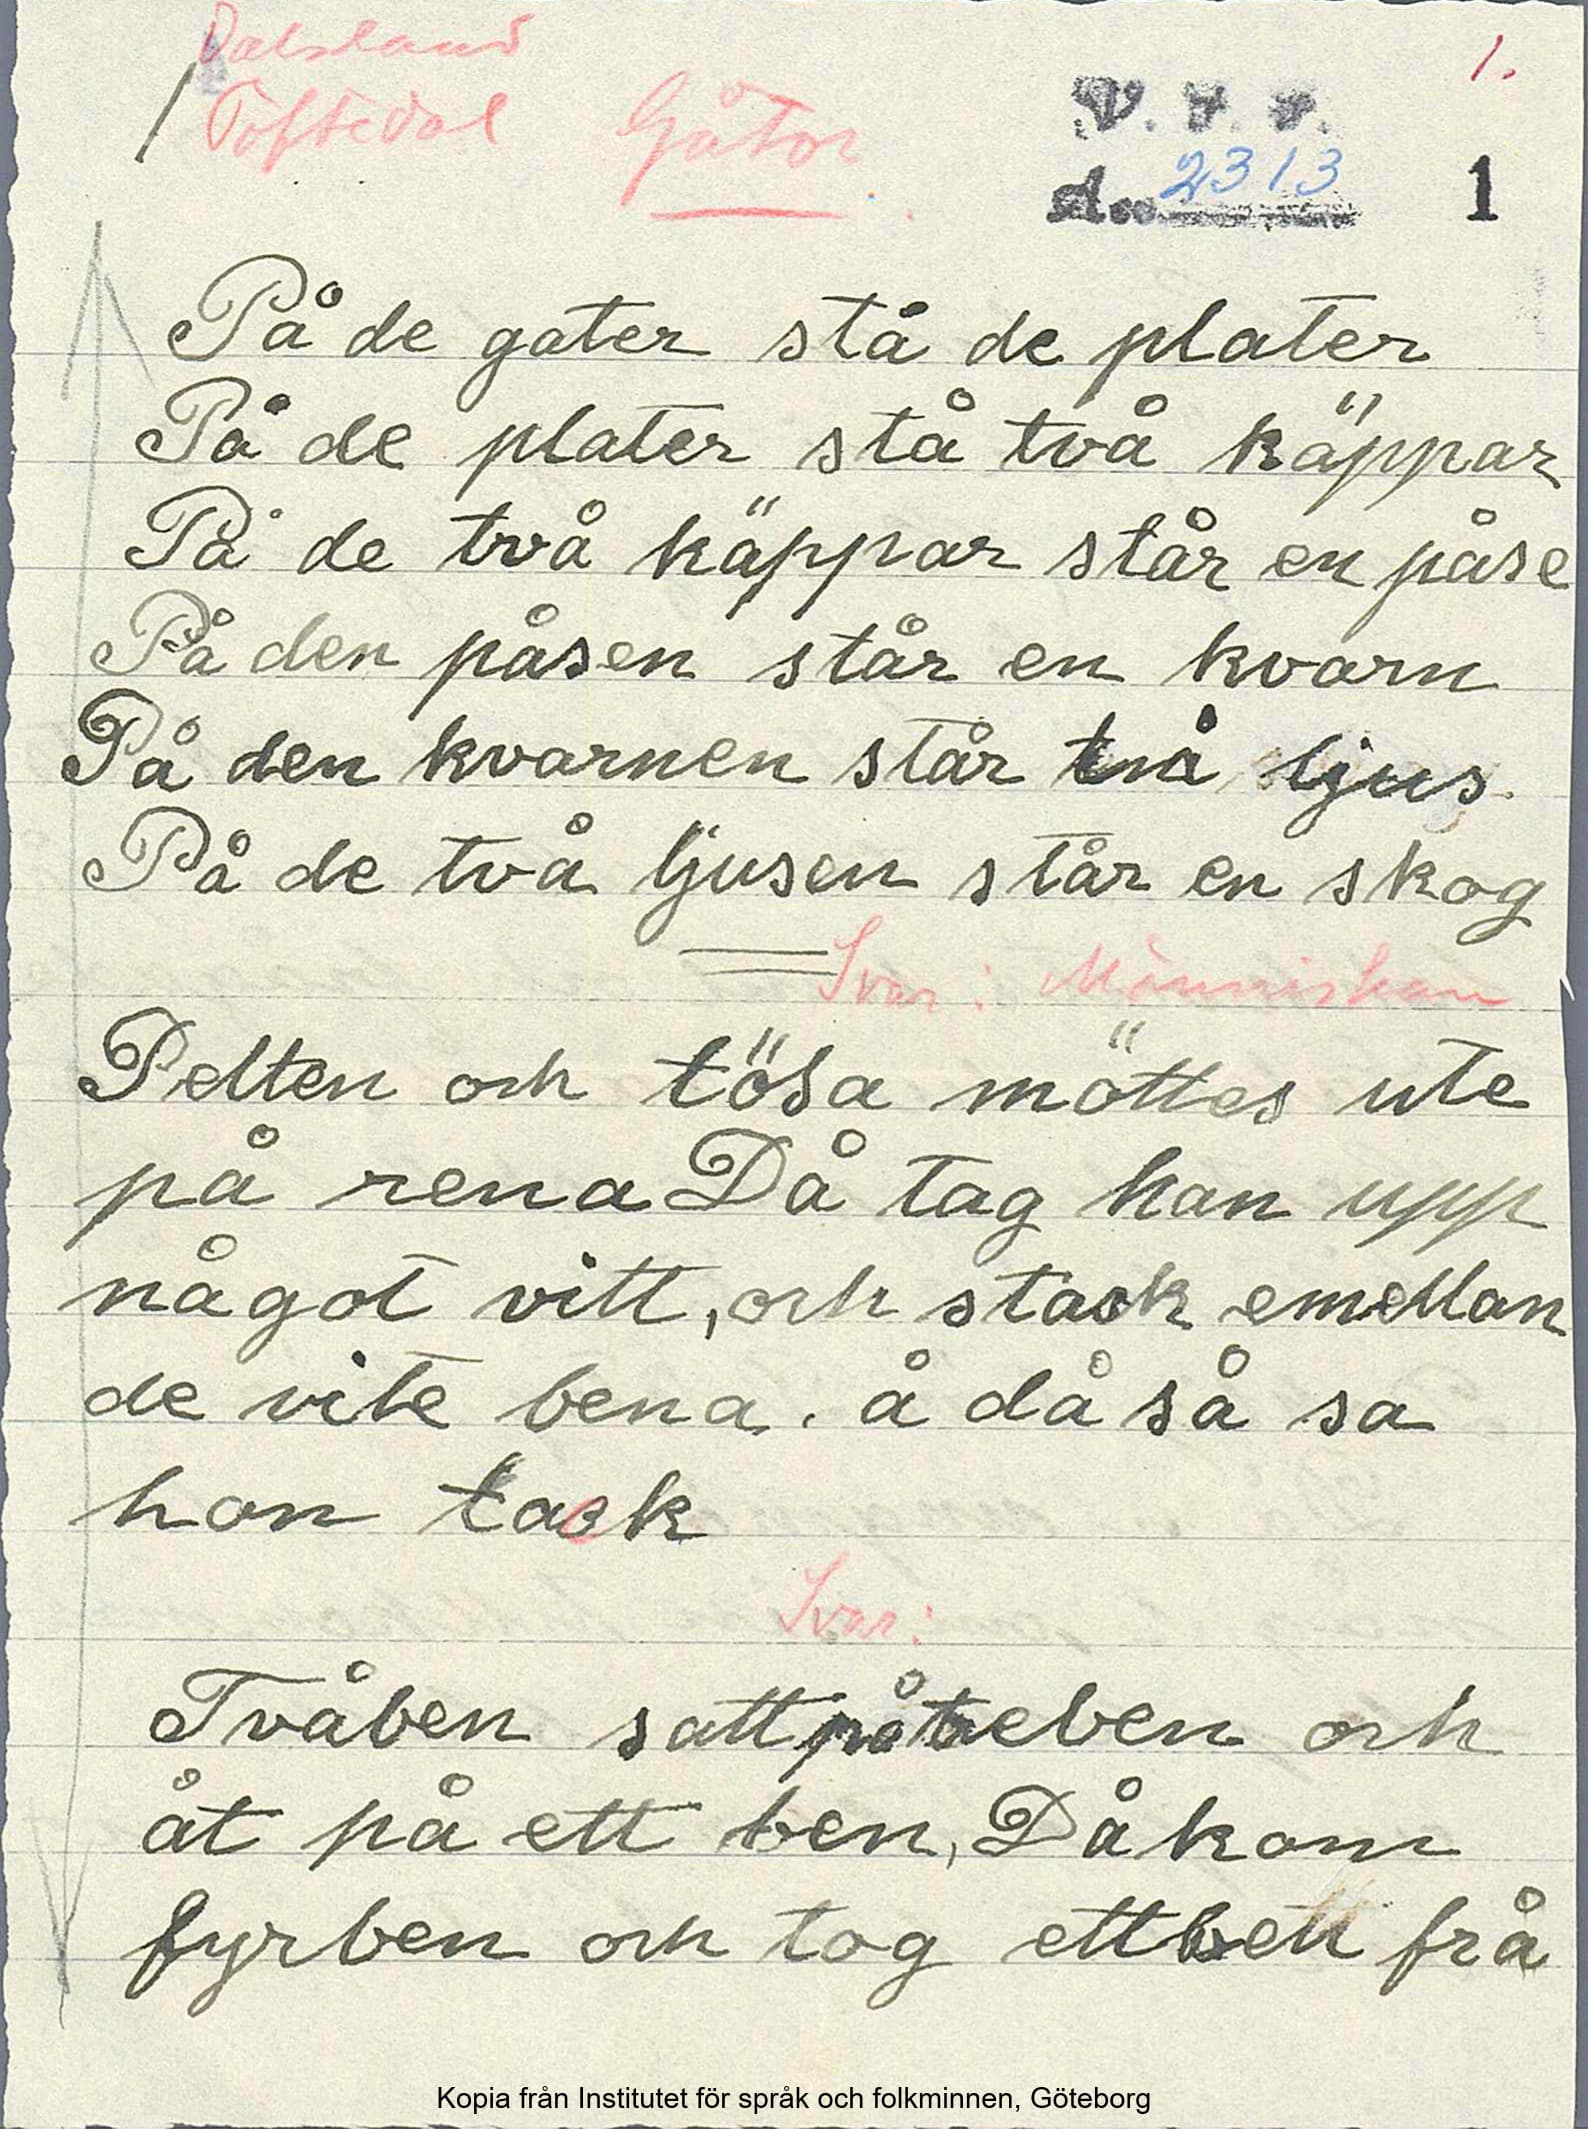 Dalsland
Töftedal
Gåtor
1.
V. F. F.
d.. 2313
1
På de gater stå de plater
På de plater stå två käppar
På de två käppar står en påse
På den påsen står en kvarn
På den kvarnen står två ljus.
På de två ljusen står en skog
Svar: Människan
Pelten och tösa möttes ute
på rena Då tag han upp
något vitt, och stack emellan
de vite bena. å då så sa
hon tack
Svar:
Tvåben satt på treben och
åt på ett ben, Då kom
fyrben och tog ett bett frå
Kopia från Institutet för språk och folkminnen, Göteborg